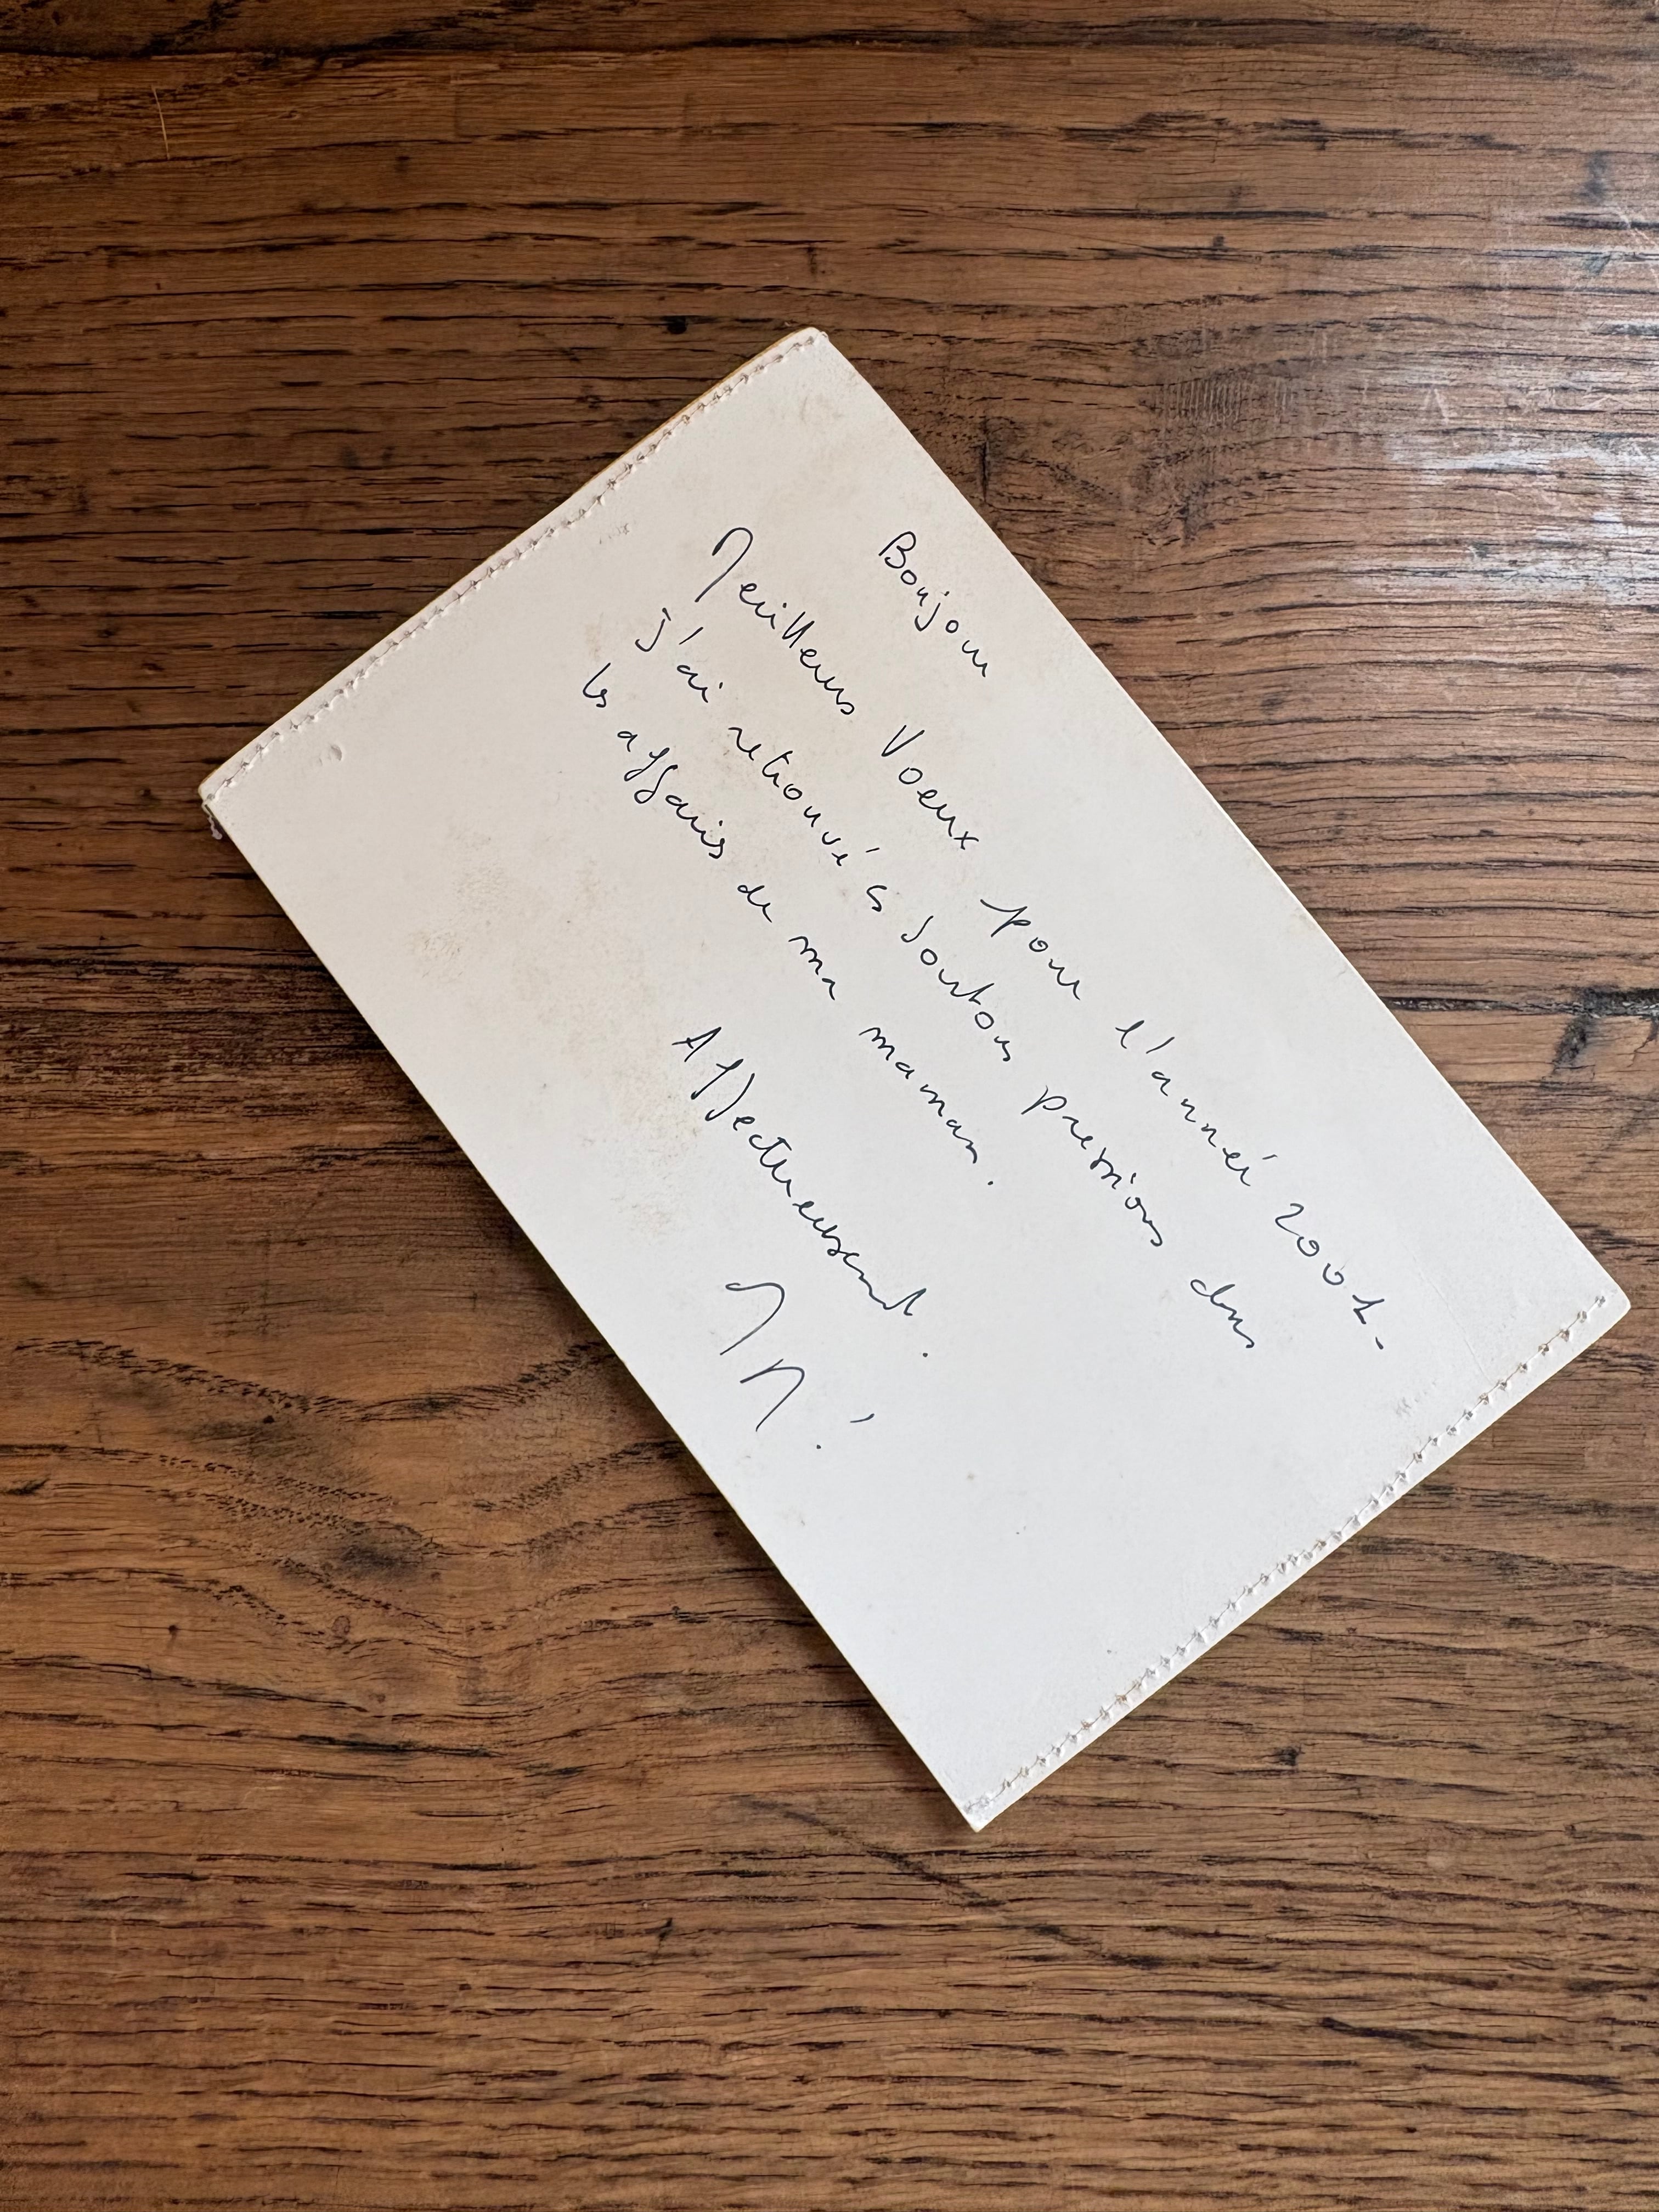 Bonjour
Meilleurs Voeux pour l'année 2001.
J'ai retrouvé les boutons pressions dans
les affaires de ma maman.
Affectueusement.